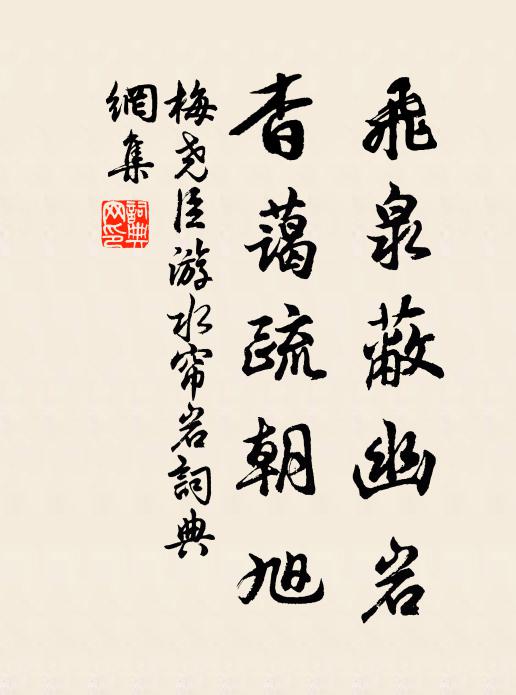 飛泉蔽幽岩
杳藹疏朝旭
梅尧臣游水帘岩詞典
網集
詞典網印